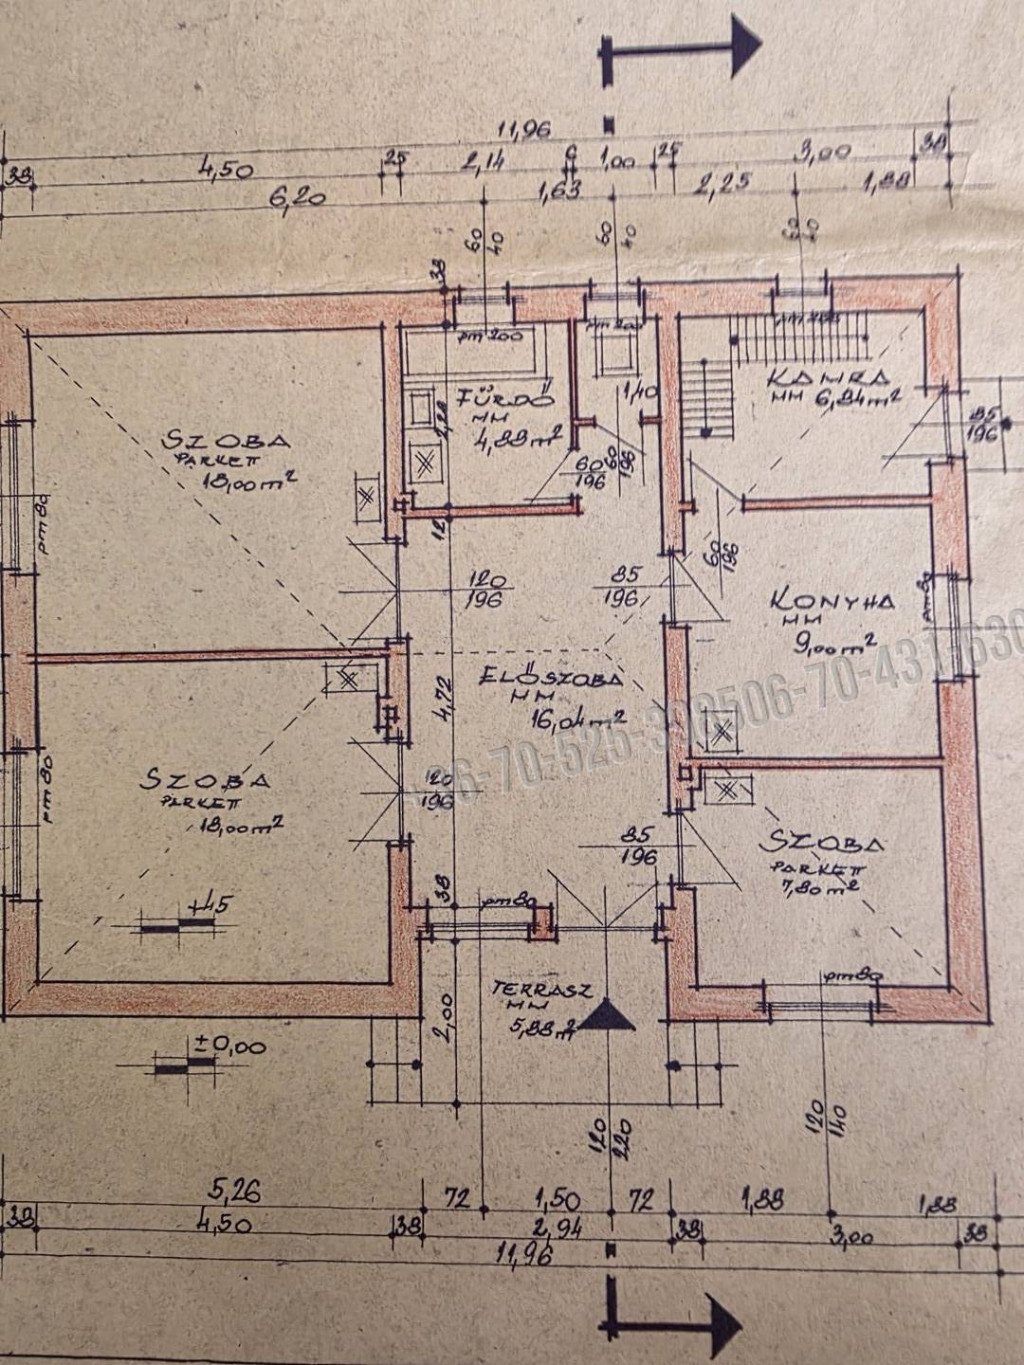 11,96
38
4,50
25
2,14
6
1,00
25
3,00
38
6,20
1,63
2,25
1,88
60
40
60
40
60
40
38
pm 200
pm 200
pm 200
SZOBA
PARKETT
18,00 m²
FÜRDŐ
MM
4,88 m²
1,40
KAMRA
MM 6,84 m²
85
196
60
196
60
196
60
196
pm 80
12
120
196
85
196
KONYHA
MM
9,00 m²
pm 80
ELŐSZOBA
MM
16,04 m²
4,72
SZOBA
PARKETT
18,00 m²
pm 80
120
196
85
196
SZOBA
PARKETT
7,80 m²
+45
38
pm 80
pm 80
TERRASZ
MM
5,88 m²
2,00
±0,00
120
220
120
140
5,26
72
1,50
72
1,88
1,88
38
4,50
38
2,94
38
3,00
38
11,96